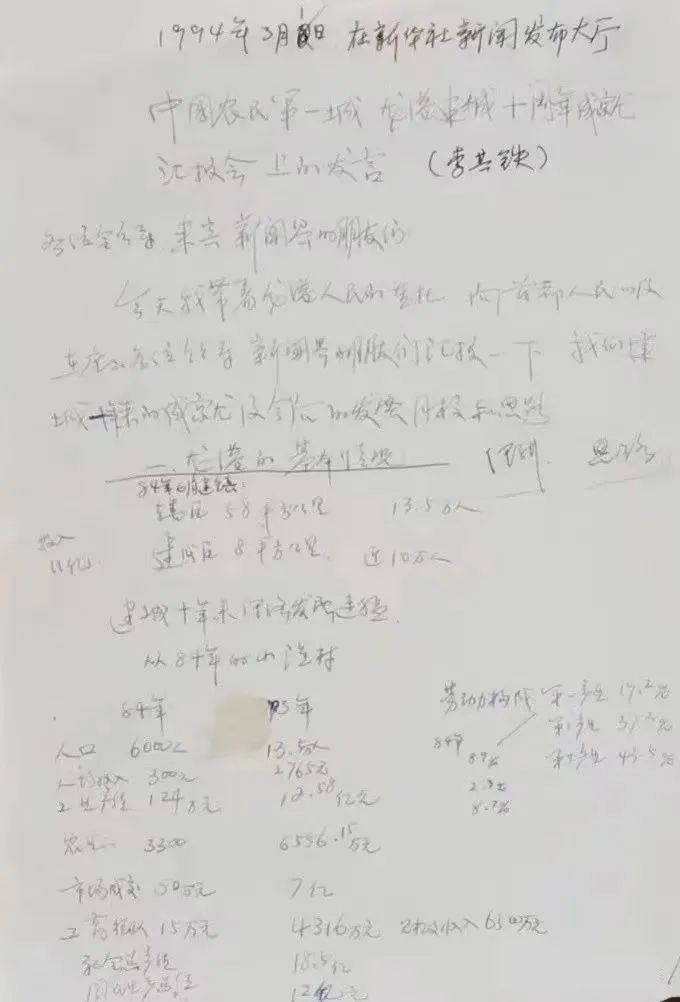 1994年3月 日 在新华社新闻发布大厅
中国农民第一城 龙港建城十周年成就
汇报会上的发言 (李其铁)
各位领导 来宾 新闻界的朋友们
今天我带着龙港人民的重托 向首都人民以及
在座的各位领导 新闻界的朋友们汇报一下 我们建
城十年来的成就及今后的发展 和思路
一、龙港的基本情况 思路
84年
58平方公里 13.5万人
投入
11亿
建成区 8平方公里, 近10万人
建城十年来经济发展迅猛
从84年的小渔村
84年 93年
人口 6000人 13.5万人
人均收入 300元 2765元
工业产值 124万元 12.58亿元
农业 3300 6556.15万元
市场成交 50万元 7亿
工商税收 15万元 4316万元 财政收入6500万元
社会总产值 18.5亿
国内生产总值 12亿元
劳动力构成 第一产业 19.2%
第二产业 37.3%
第三产业 43.5%
84年
89%
2.3%
8.7%